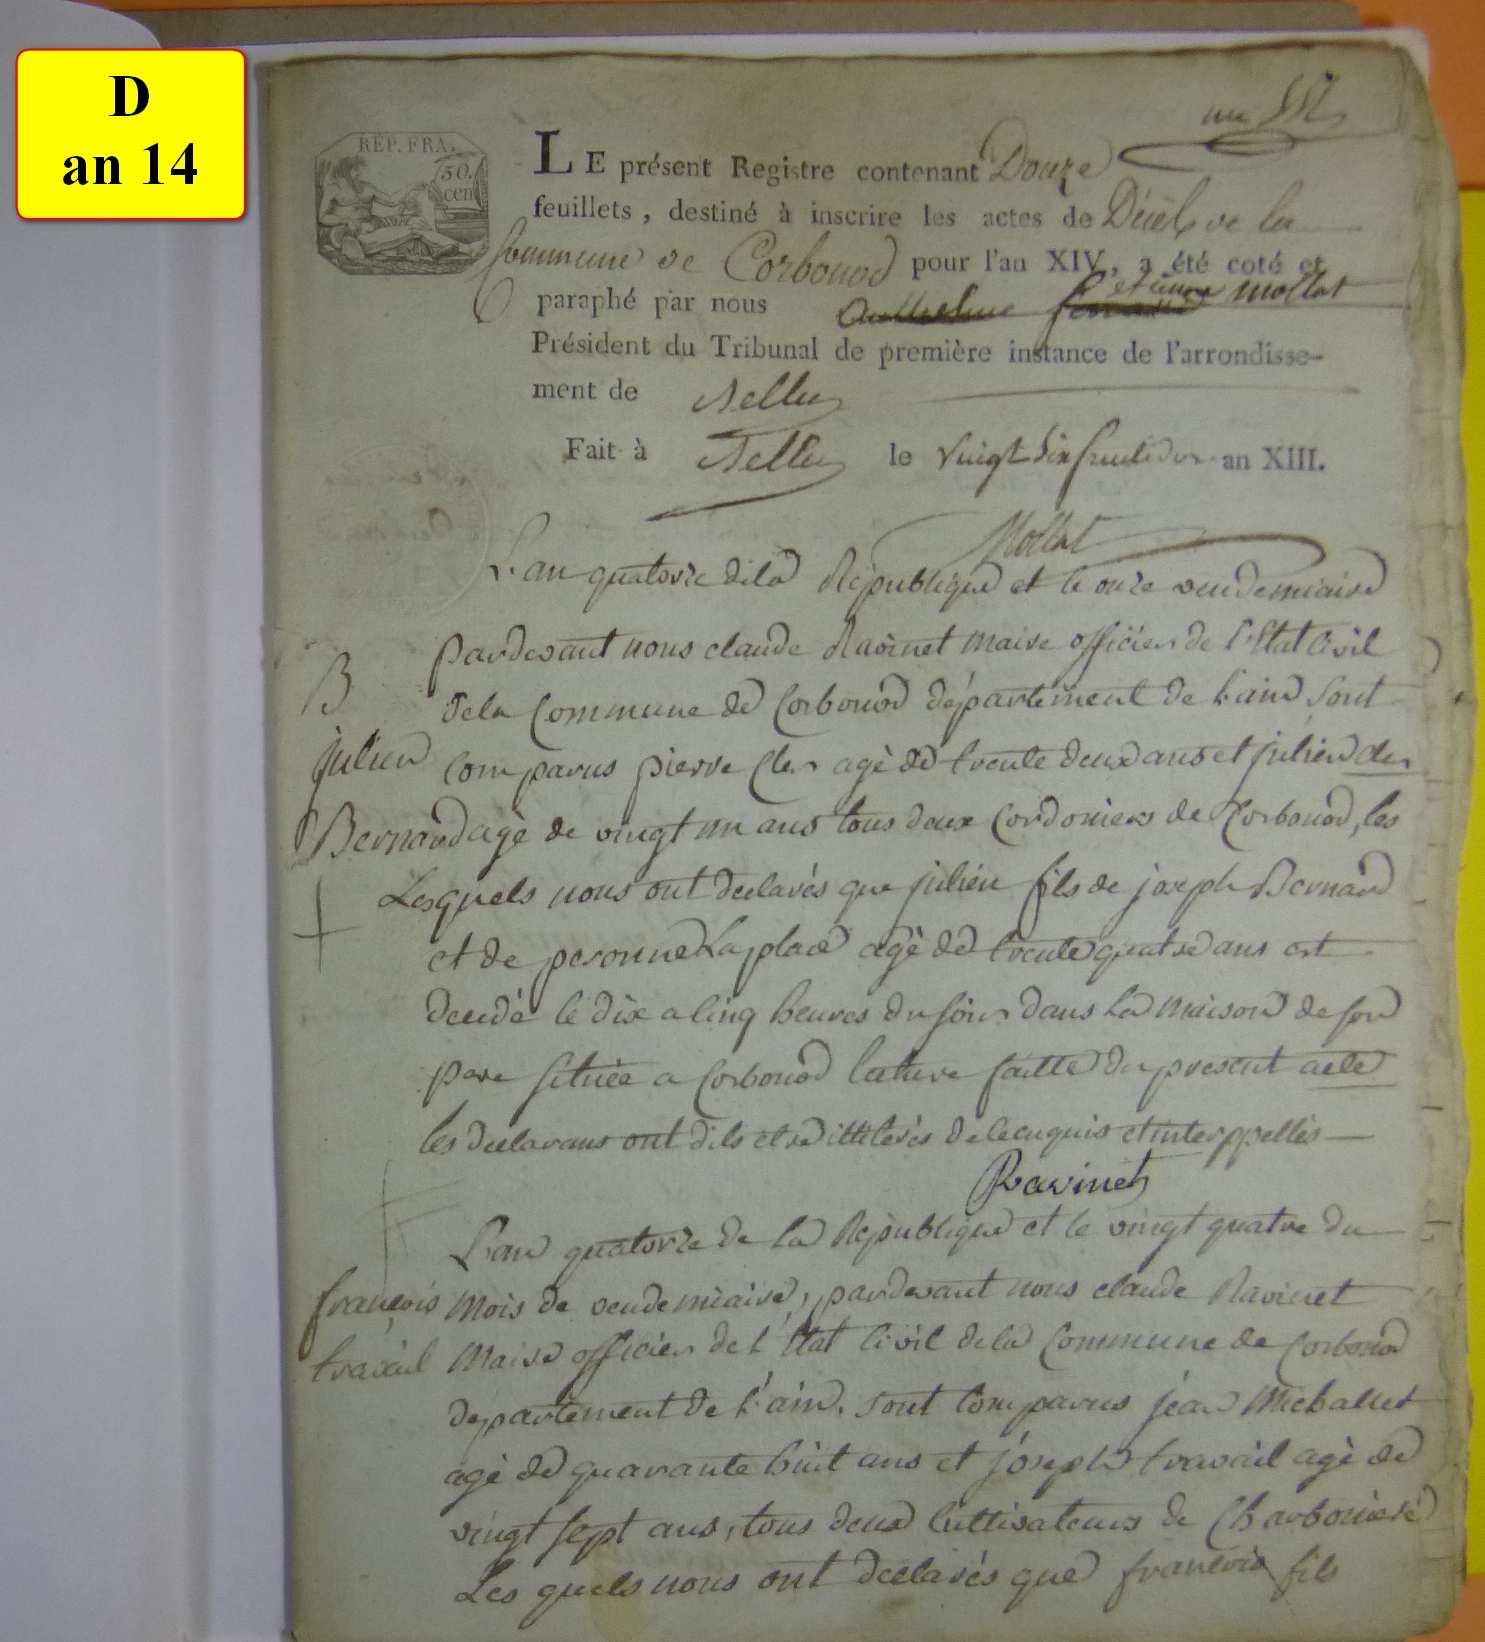 D
an 14
RÉP. FRA.
50.
cen
LE présent Registre contenant Douze
feuillets, destiné à inscrire les actes de Décès de la
Commune de Corbonod pour l'an XIV, a été coté et
paraphé par nous Anthelme etienne mollat
Président du Tribunal de première instance de l'arrondisse-
ment de Belley
Fait à Belley le Vingt Six fructidor an XIII.
Mollat
L'an quatorze de la République et le onze vendemiaire
pardevant nous claude Ravinet maire officier de l'Etat Civil
B
de la Commune de Corbonod département de l'ain sont
julien
comparus pierre Cler agé de trente deux ans et julien cler
Bernard
agé de vingt un ans tous deux Cordoniers de Corbonod, les
Lesquels nous ont declarés que julien fils de joseph Bernard
et de peronne Laplace agé de trente quatre ans est
decedé le dix a Cinq heures du soir dans La maison de son
pere située a Corbonod lecture faitte du present acte
les declarans ont dits etre illiterés de ce enquis et interppellés
Ravinet
L'an quatorze de la République et le vingt quatre du
françois
mois de vendemiaire, pardevant nous claude Ravinet
travail
Maire officier de l'Etat Civil de la Commune de Corbonod
departement de l'ain, sont Comparus jean Michallet
agé de quarante huit ans et joseph travail agé de
vingt sept ans, tous deux Cultivateurs de Charboniere
Les quels nous ont declarés que françois fils